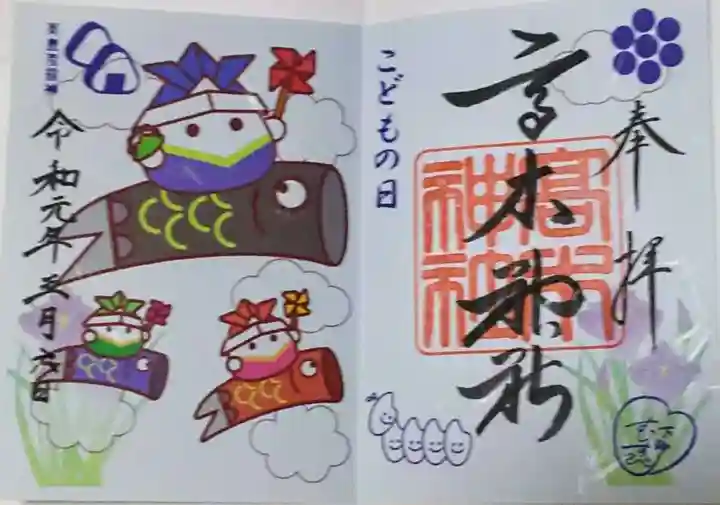 奉拝
高木神社
高木神社
こどもの日
令和元年五月六日